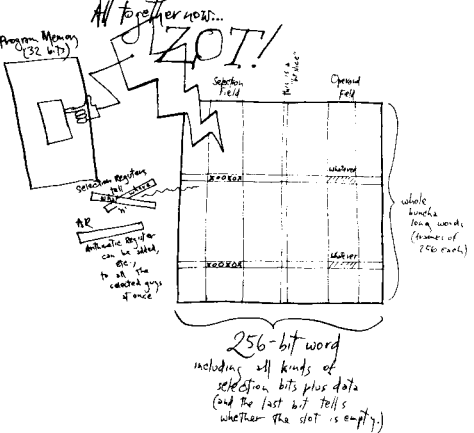 All together now...
ZOT!
Program Memory
(32 bits)
Selection
Field
this is a
Operand
Field
Selection Registers
tell
where
"n"
whatever
AR
Arithmetic Register
can be added,
etc.,
to all the
selected guys
at once
whatever
whole
buncha
long words
(frames of
256 each)
256-bit word
including all kinds of
selection bits plus data
(and the last bit tells
whether the slot is empty.)